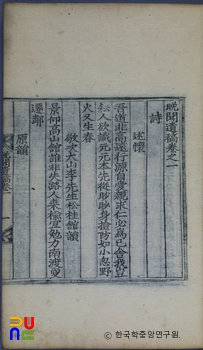 晩聞遺稿卷之一
詩
述懷
吾道非高遠行源自愛親求仁必爲己會我豈
私人欲識死元本先從眇眇身擒防如小忽野
火又生春
敬次大山李先生松桂館韻
景仰高山館誰非失路人來檢宜勉力南渡更
遷鄰
原韻
PUNC
한국학중앙연구원